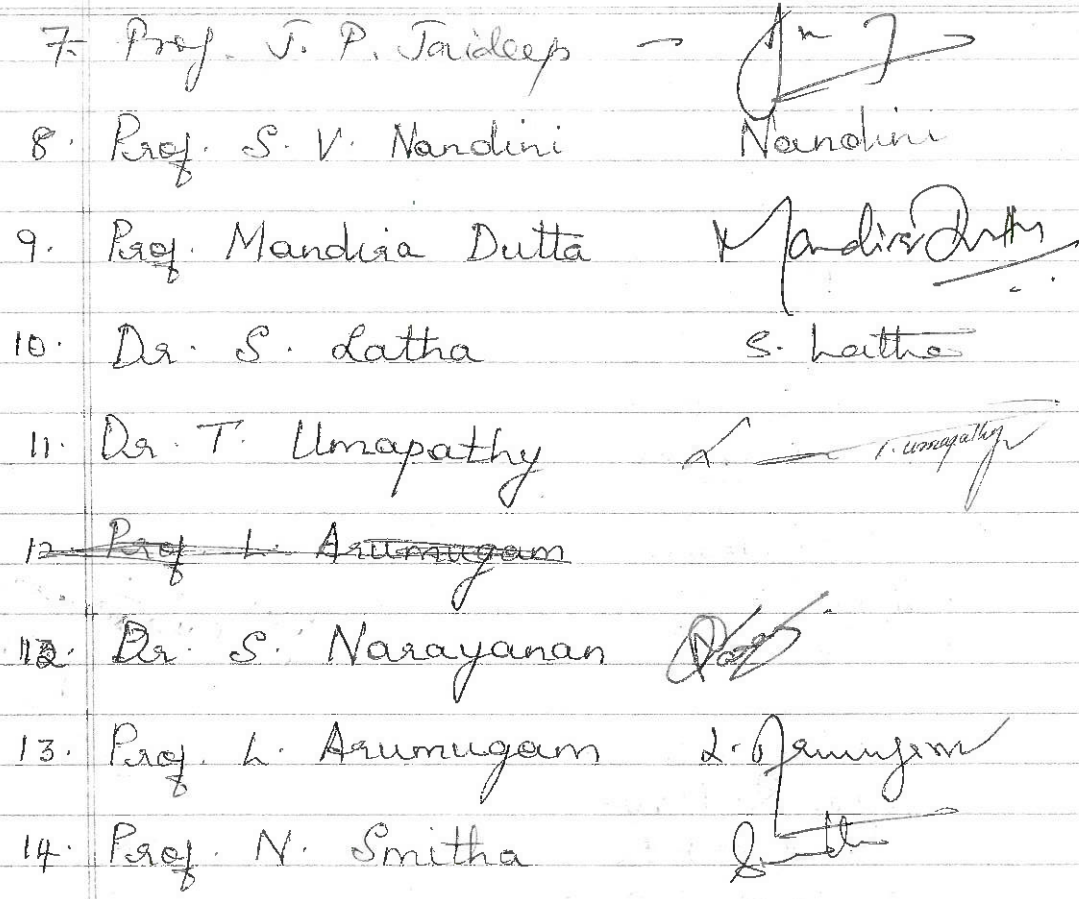 7. Prof. J. P. Jaideep -
8. Prof. S. V. Nandini Nandini
9. Prof. Mandira Dutta Mandira Dutta
10. Dr. S. Latha S. Latha
11. Dr. T. Umapathy T. Umapathy
12. Prof. L. Arumugam
12. Dr. S. Narayanan
13. Prof. L. Arumugam L. Arumugam
14. Prof. N. Smitha Smitha